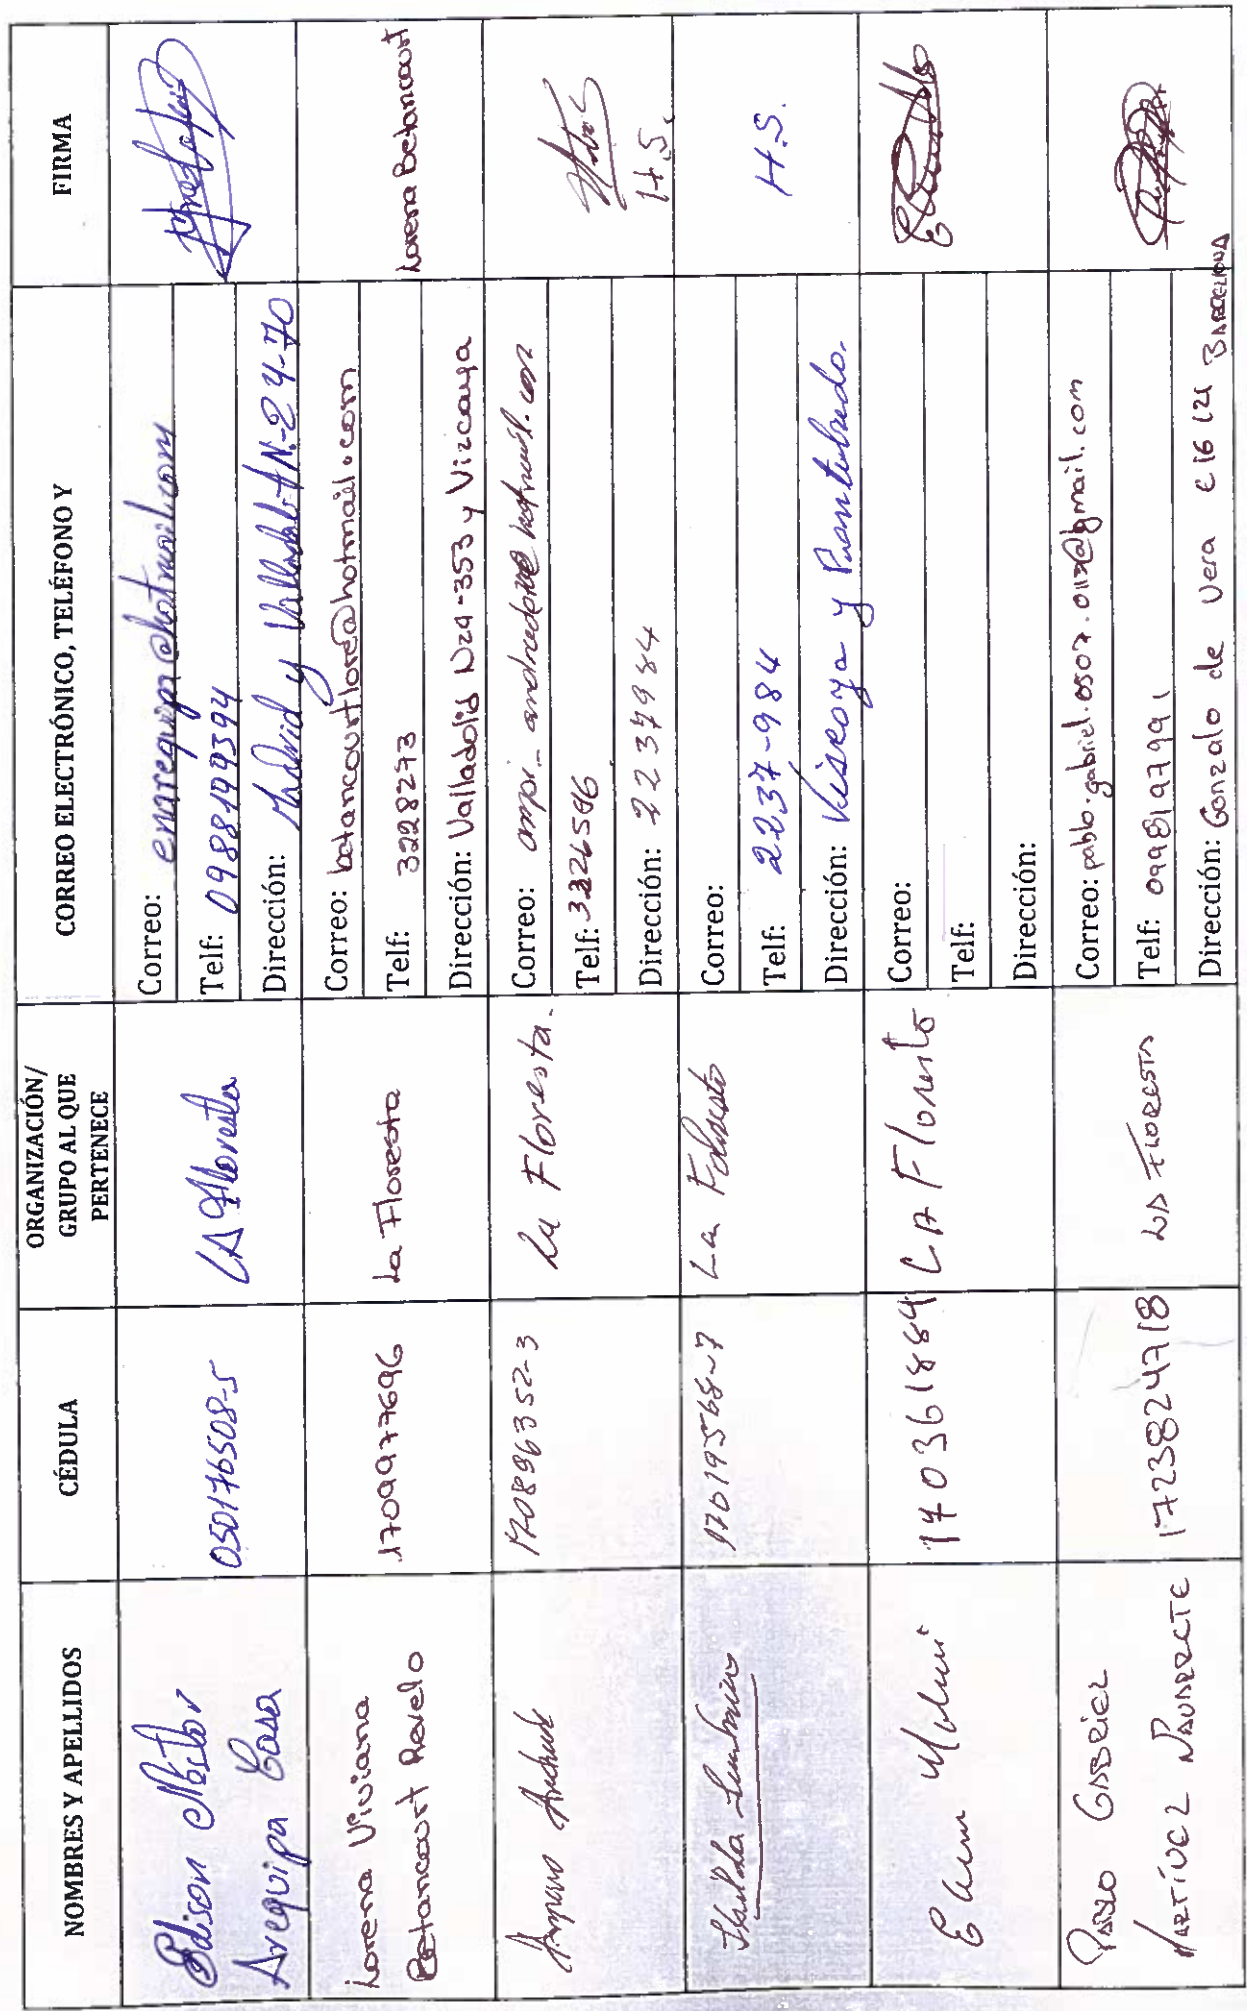 NOMBRES Y APELLIDOS
CÉDULA
ORGANIZACIÓN/
GRUPO AL QUE
PERTENECE
CORREO ELECTRÓNICO, TELÉFONO Y
FIRMA
Edison Néstor
Arequipa Casa
050176508-5
LA Floresta
Correo: enarequipa@hotmail.com
Telf: 0988199394
Dirección: Madrid y Valladolid N-24-70
Lorena Viviana
Betancourt Revelo
1709977696
La Floresta
Correo: betancourtlore@hotmail.com
Telf: 3228273
Dirección: Valladolid N24-353 y Vizcaya
Lorena Betancourt
Amparo Andrade
170896352-3
La Floresta.
Correo:
Telf: 3226506
Dirección: 2237984
H.S.
170193568-7
La
Correo:
Telf: 2237-984
Dirección: y
H.S.
170361884
LA Floresta
Correo:
Telf:
Dirección:
PABLO GABRIEL
MARTÍNEZ NAVARRETE
1723824718
LA FLORESTA
Correo: pablo.gabriel.0507.011@gmail.com
Telf: 0998197991
Dirección: Gonzalo de Vera E16 124 BARCELONA